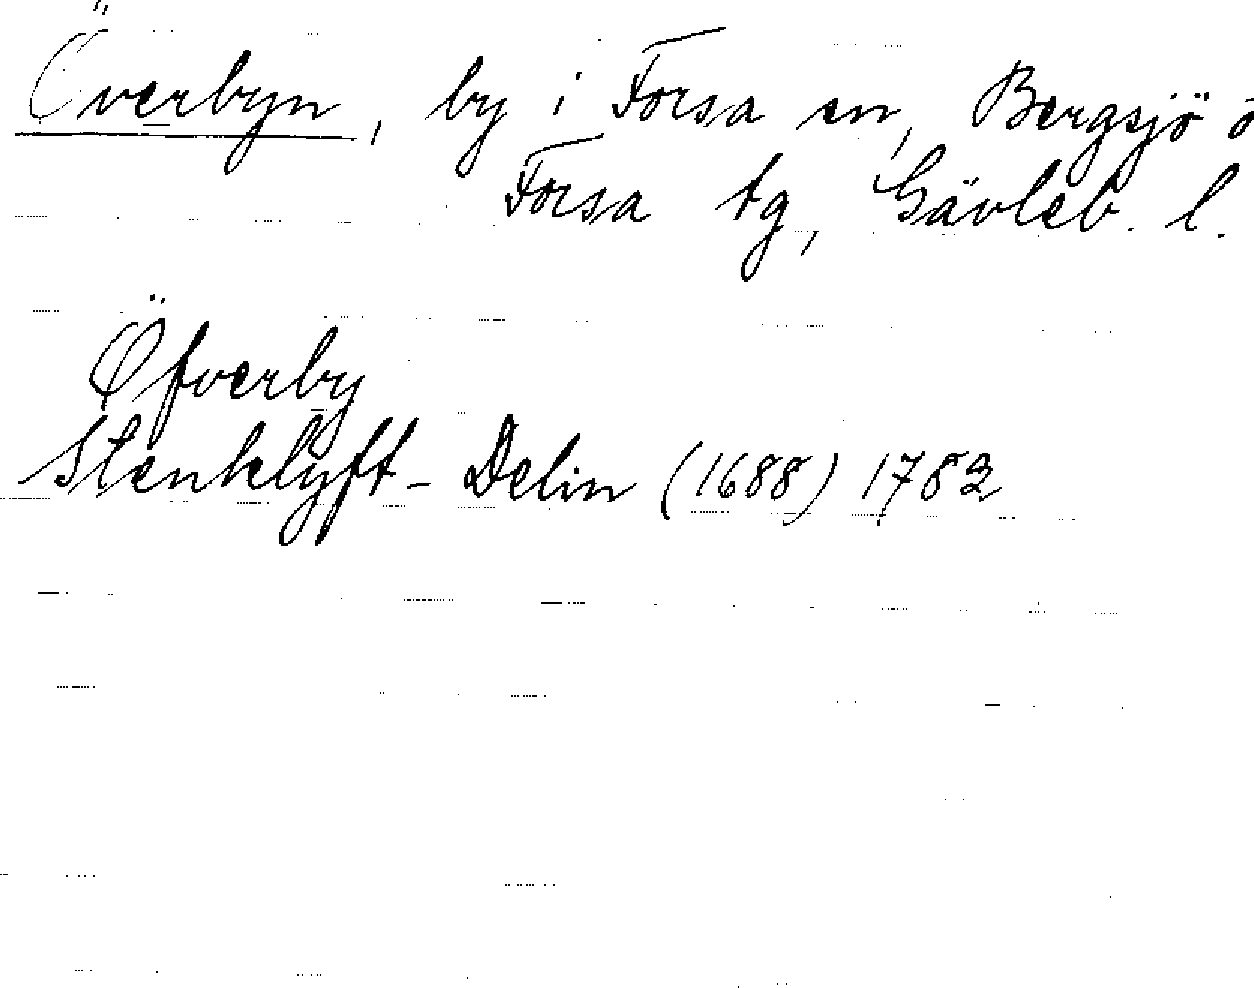 Överbyn, by i Forsa sn, Bergsjö o
Forsa tg, Gävleb. l.
Øfverby
Stenklyft-Delin (1688) 1782